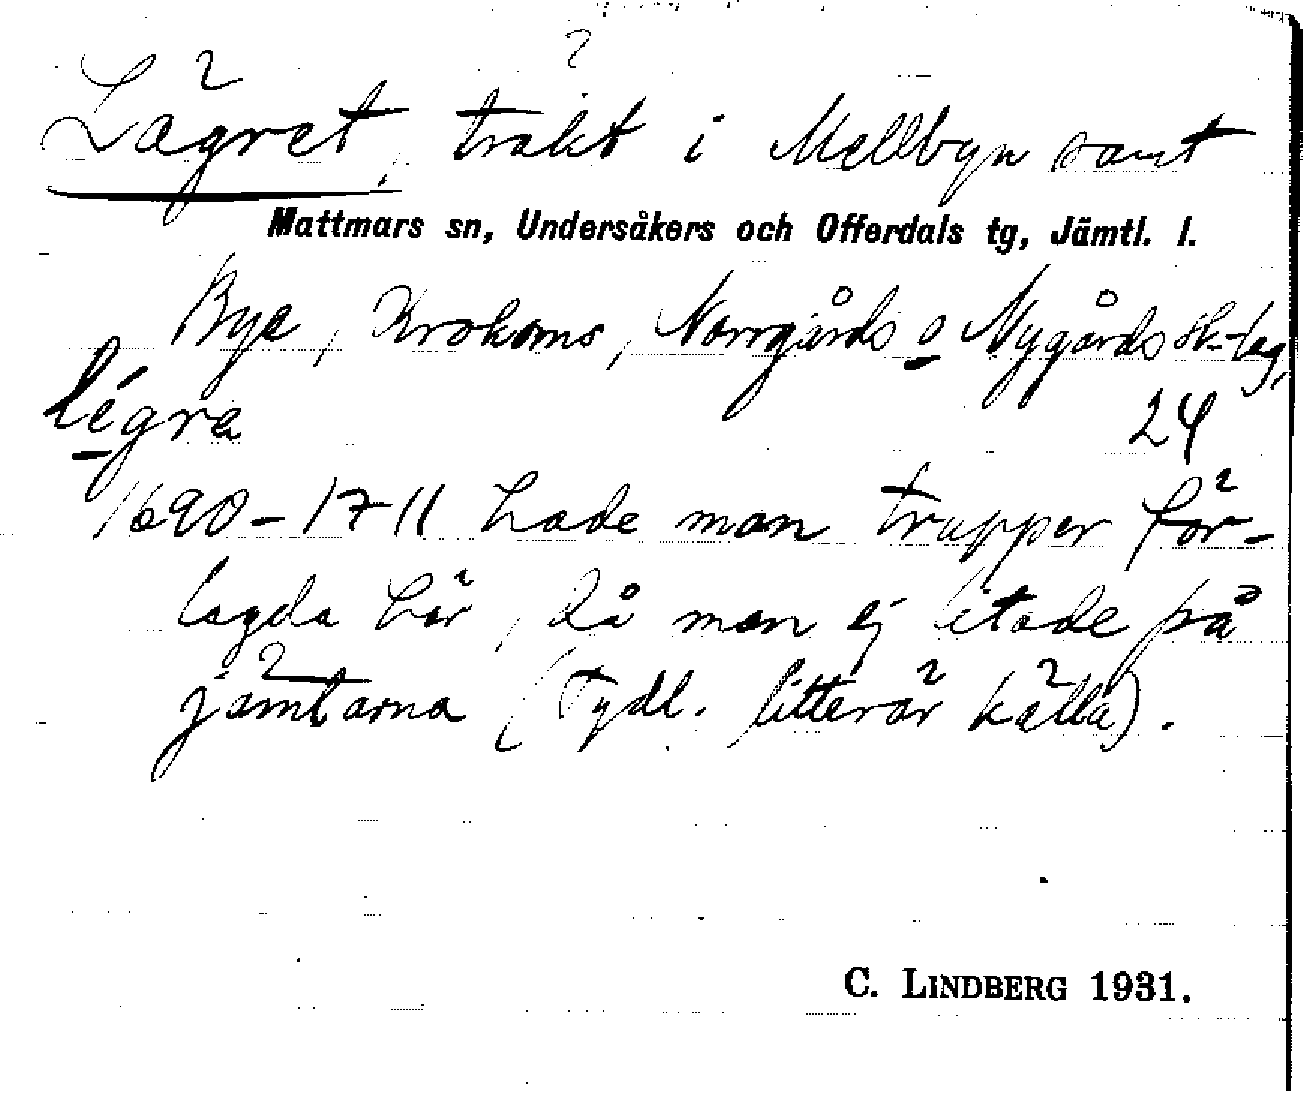 Lägret, trakt i Mellbyn samt
Mattmars sn, Undersåkers och Offerdals tg, Jämtl. l.
Bye, Krokoms, Norrgårds o Nygårds sk-lag,
légra 24
1690-1711 hade man trupper för-
lagda här, då man ej litade på
jämtarna (Tydl. litterär källa).
C. LINDBERG 1931.